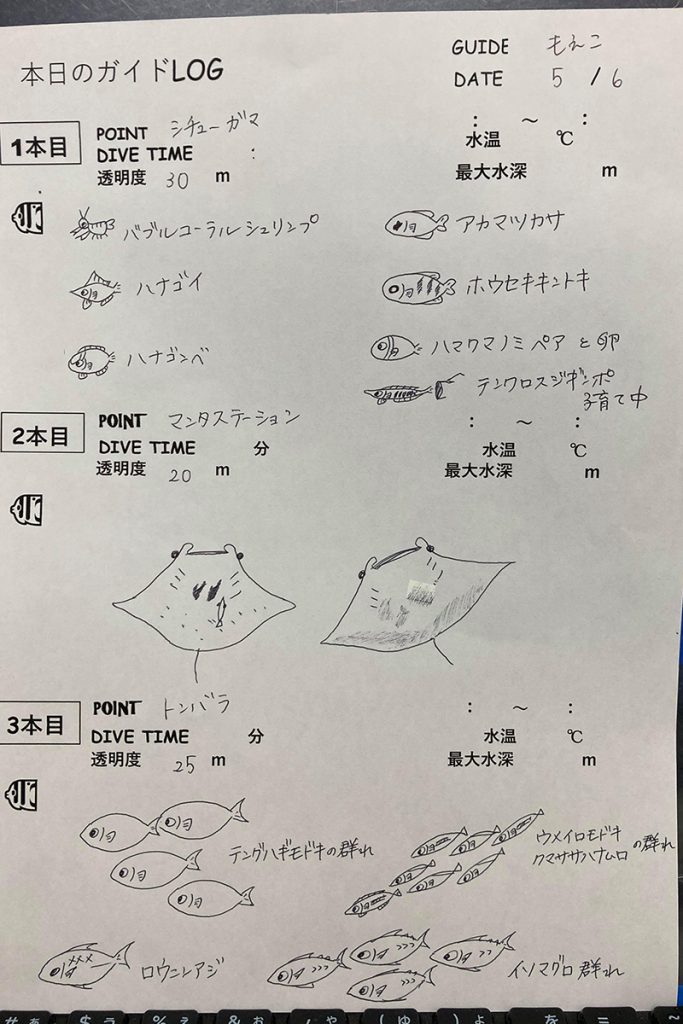 本日のガイドLOG
GUIDE もえこ
DATE 5 / 6
1本目
POINT シチューガマ
: ～ :
DIVE TIME :
水温 ℃
透明度 30 m
最大水深 m
バブルコーラルシュリンプ
アカマツカサ
ハナゴイ
ホウセキキントキ
ハナゴンベ
ハマクマノミペアと卵
テンクロスジギンポ
子育て中
2本目
POINT マンタステーション
: ～ :
DIVE TIME 分
水温 ℃
透明度 20 m
最大水深 m
3本目
POINT トンバラ
: ～ :
DIVE TIME 分
水温 ℃
透明度 25 m
最大水深 m
テングハギモドキの群れ
ウメイロモドキ
クマササハナムロ の群れ
ロウニンアジ
イソマグロ群れ
# ぁ $ ぅ % ぇ & ぉ ' ゃ ( ゅ ) ょ を = ~